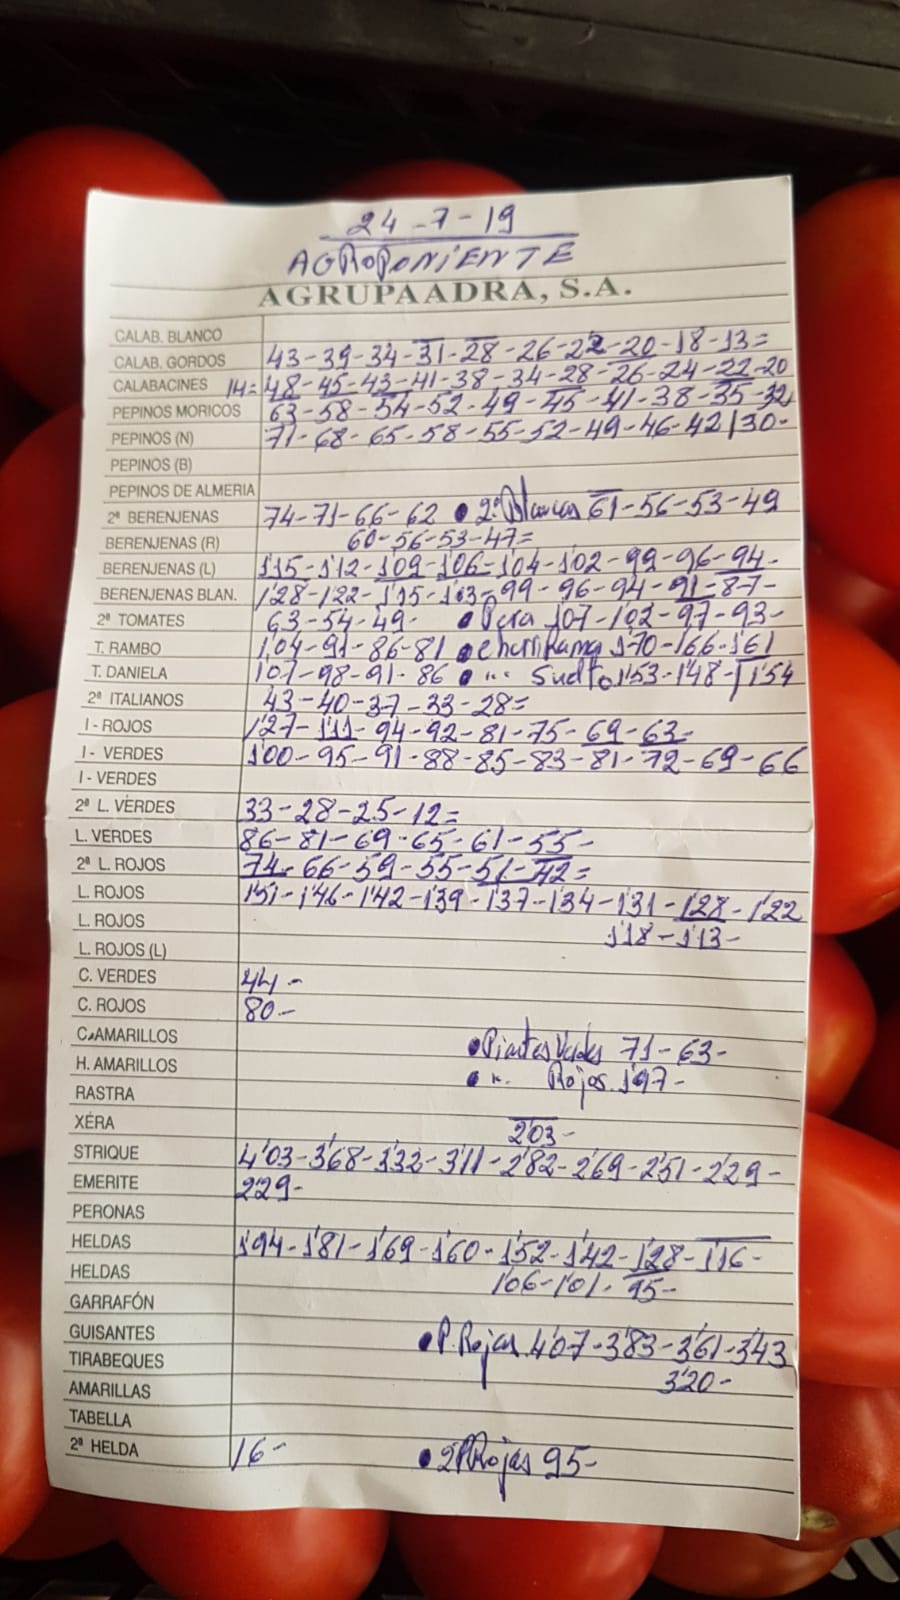 24-7-19
AGROPONIENTE
AGRUPAADRA, S.A.
CALAB. BLANCO
CALAB. GORDOS 43-39-34-31-28-26-22-20-18-13=
CALABACINES 14=48-45-43-41-38-34-28-26-24-22-20
PEPINOS MORICOS 63-58-54-52-49-45-41-38-35-32
PEPINOS (N) 71-68-65-58-55-52-49-46-42/30-
PEPINOS (B)
PEPINOS DE ALMERIA
2ª BERENJENAS 74-71-66-62 • 2ª Blancas 61-56-53-49
BERENJENAS (R) 60-56-53-47=
BERENJENAS (L) 1'15-1'12-1'09-1'06-1'04-1'02-99-96-94-
BERENJENAS BLAN. 1'28-1'22-1'15-1'03-99-96-94-91-87-
2ª TOMATES 63-54-49- • Pera 1'07-1'02-97-93-
T. RAMBO 1'04-91-86-81 • cherri Rama 1'70-1'66-1'61
T. DANIELA 1'07-98-91-86 • "" Suelto 1'53-1'48-/1'54
2ª ITALIANOS 43-40-37-33-28=
I - ROJOS 1'27-1'11-94-92-81-75-69-63-
I - VERDES 1'00-95-91-88-85-83-81-72-69-66
I - VERDES
2ª L. VERDES 33-28-25-12=
L. VERDES 86-81-69-65-61-55-
2ª L. ROJOS 74-66-59-55-51-42=
L. ROJOS 1'51-1'46-1'42-1'39-1'37-1'34-1'31-1'28-1'22
L. ROJOS 1'18-1'13-
L. ROJOS (L)
C. VERDES 44-
C. ROJOS 80-
C. AMARILLOS • Piantes Verdes 71-63-
H. AMARILLOS • ". Rojos. 1'97-
RASTRA
XÉRA 203-
STRIQUE 4'03-3'68-3'32-3'11-2'82-2'69-2'51-2'29-
EMERITE 229-
PERONAS
HELDAS 1'94-1'81-1'69-1'60-1'52-1'42-1'28-1'16-
HELDAS 1'06-1'01-95-
GARRAFÓN
GUISANTES • P. Rojas 4'07-3'83-3'61-3'43
TIRABEQUES 3'20-
AMARILLAS
TABELLA
2ª HELDA 16- • 2ª P Rojas 95-